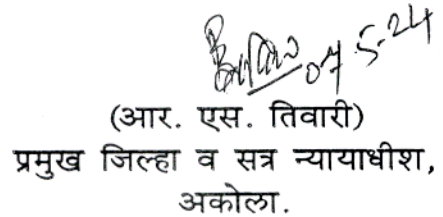 07.5.24
(आर. एस. तिवारी)
प्रमुख जिल्हा व सत्र न्यायाधीश,
अकोला.